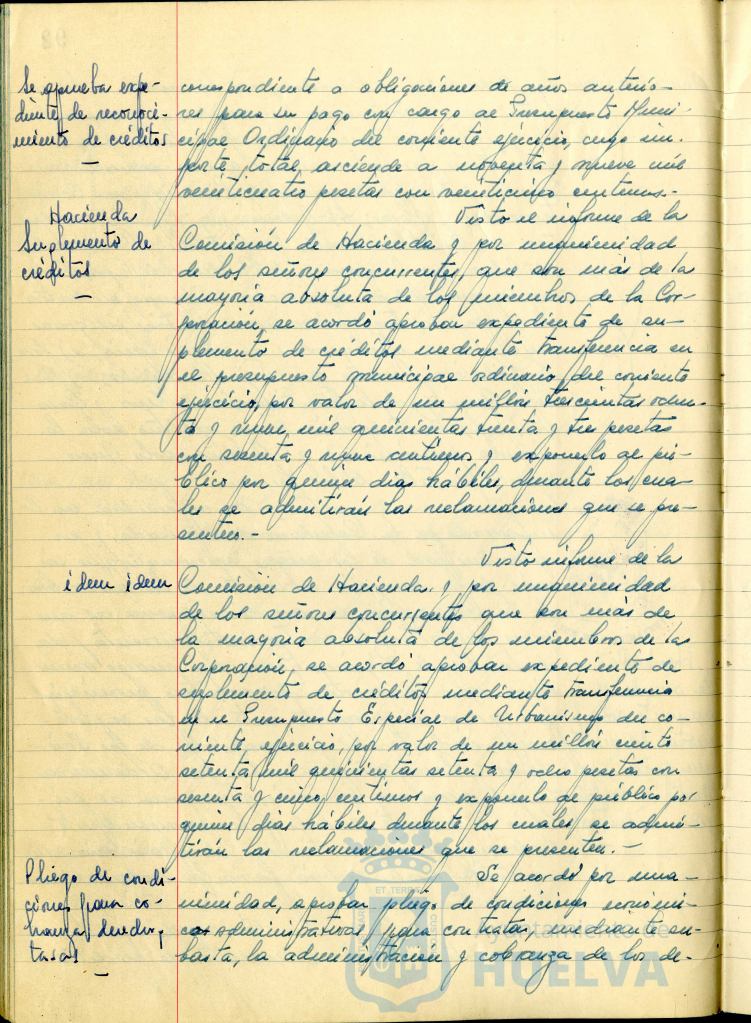 Se aprueba expe-
diente de reconoci-
miento de créditos
—
correspondiente a obligaciones de años anterio-
res para su pago con cargo al Presupuesto Muni-
cipal Ordinario del corriente ejercicio, cuyo im-
porte total asciende a noventa y nueve mil
veinticuatro pesetas con veinticinco centimos.-
Hacienda
Suplemento de
créditos
—
Visto el informe de la
Comisión de Hacienda y por unanimidad
de los señores concurrentes, que son más de la
mayoría absoluta de los miembros de la Cor-
poración, se acordó aprobar expediente de su-
plemento de créditos mediante transferencia en
el presupuesto municipal ordinario del corriente
ejercicio, por valor de un millón trescientas ochen-
ta y nueve mil quinientas treinta y tres pesetas
con sesenta y nueve centimos y exponerlo al pú-
blico por quince dias hábiles, durante los cua-
les se admitirán las reclamaciones que se pre-
senten.-
idem idem
Visto informe de la
Comisión de Hacienda y por unanimidad
de los señores concurrentes que son más de
la mayoría absoluta de los miembros de la
Corporación, se acordó aprobar expediente de
suplemento de créditos mediante transferencia
en el Presupuesto Especial de Urbanismo del co-
rriente ejercicio, por valor de un millón ciento
setenta mil quinientas setenta y ocho pesetas con
sesenta y cinco centimos y exponerlo al público por
quince dias hábiles durante los cuales se admi-
tirán las reclamaciones que se presenten.-
Pliego de condi-
ciones para co-
branza derechos,
tasas
—
Se acordó por una-
nimidad, aprobar pliego de condiciones económi-
cas administrativas, para contratar, mediante su-
basta, la administración y cobranza de los de-
Ayuntamiento de
HUELVA